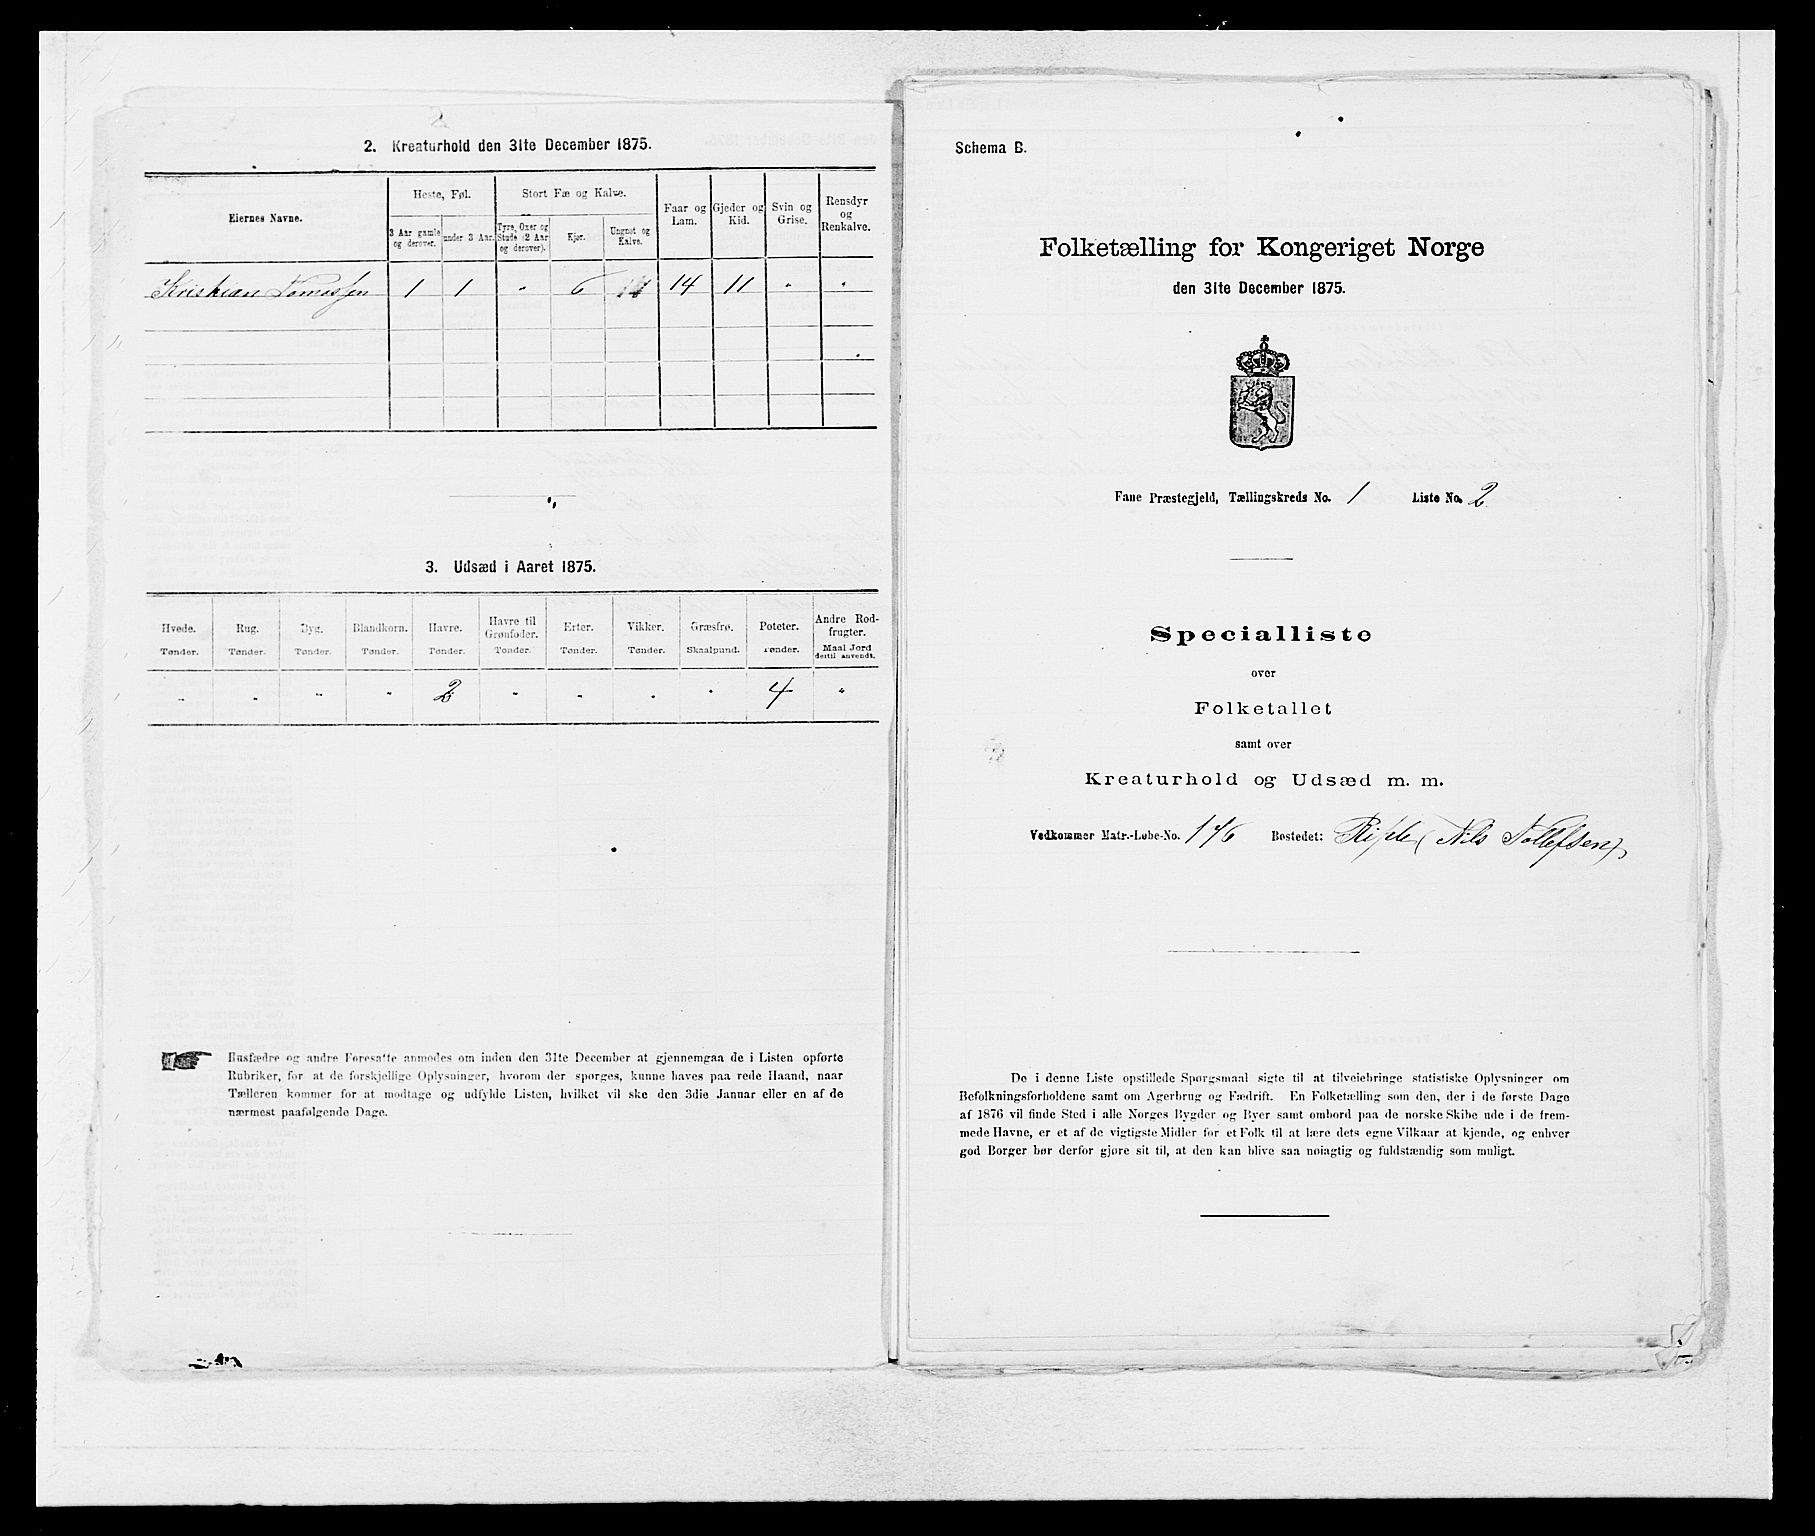 2. Kreaturhold den 31te December 1875.
Eiernes Navne.
Heste, Føl.
Stort Fæ og Kalve.
Faar og Lam.
Gjeder og Kid.
Svin og Grise.
Rensdyr og Renkalve.
3 Aar gamle og derover.
under 3 Aar.
Tyre, Oxer og Stude (2 Aar og derover).
Kjør.
Ungnøt og Kalve.
Kristian 1 1 " 6 14 11 " "
3. Udsæd i Aaret 1875.
Hvede. Rug. Byg. Blandkorn. Havre. Havre til Grønfoder. Erter. Vikker. Græsfrø. Poteter. Andre Rodfrugter.
Tønder. Tønder. Tønder. Tønder. Tønder. Tønder. Tønder. Tønder. Skaalpund. Tønder. Maal Jord dertil anvendt.
" " " " 2 " " " " 4 "
Husfædre og andre Foresatte anmodes om inden den 31te December at gjennemgaa de i Listen opførte
Rubriker, for at de forskjellige Oplysninger, hvorom der spørges, kunne haves paa rede Haand, naar
Tælleren kommer for at modtage og udfylde Listen, hvilket vil ske den 3die Januar eller en af de
nærmest paafølgende Dage.
Schema B.
Folketælling for Kongeriget Norge
den 31te December 1875.
Fane Præstegjeld, Tællingskreds No. 1 Liste No. 2
Specialliste
over
Folketallet
samt over
Kreaturhold og Udsæd m. m.
Vedkommer Matr.-Løbe-No. 176 Bostedet: (Nils Tollefsen)
De i denne Liste opstillede Spørgsmaal sigte til at tilveiebringe statistiske Oplysninger om
Befolkningsforholdene samt om Agerbrug og Fædrift. En Folketælling som den, der i de første Dage
af 1876 vil finde Sted i alle Norges Bygder og Byer samt ombord paa de norske Skibe ude i de frem-
mede Havne, er et af de vigtigste Midler for et Folk til at lære dets egne Vilkaar at kjende, og enhver
god Borger bør derfor gjøre sit til, at den kan blive saa nøiagtig og fuldstændig som muligt.